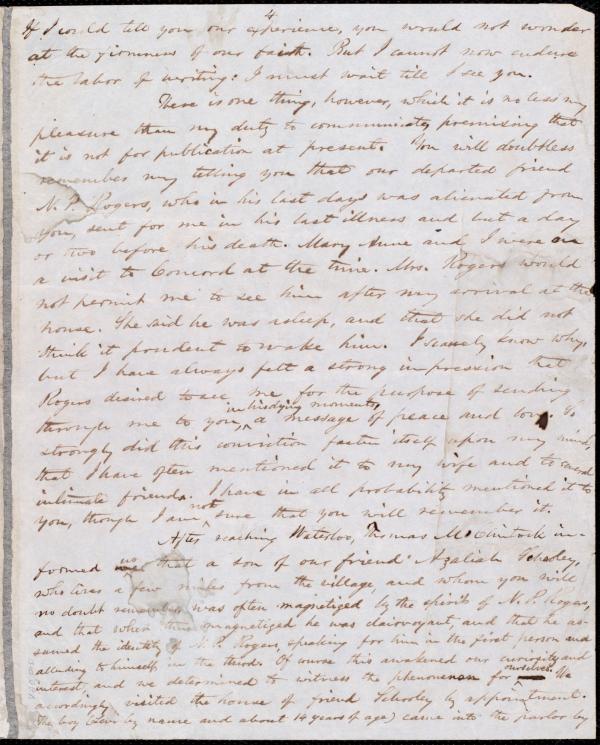 4.
If I could tell you our experience, you would not wonder
at the firmness of our faith. But I cannot now endure
the labor of writing: I must wait till I see you.
There is one thing, however, which it is no less my
pleasure than my duty to communicate, premising that
it is not for publication at present. You will doubtless
remember my telling you that our departed friend
N. P. Rogers, who in his last days was alienated from
you, sent for me in his last illness and but a day
or two before his death. Mary Anne and I were on
a visit to Concord at the time. Mrs. Rogers would
not permit me to see him after my arrival at the
house. She said he was asleep, and that she did not
think it prudent to wake him. I scarcely know why,
but I have always felt a strong impression that
Rogers desired to see me for the purpose of sending
through me to you, in his dying moments, a message of peace and love. So
strongly did this conviction fasten itself upon my mind,
that I have often mentioned it to my wife and to several
intimate friends. I have in all probability mentioned it to
you, though I am not sure that you will remember it.
After reaching Waterloo, Thomas McClintock in-
formed us that a son of our friend Azaliah Schooley,
who lives a few miles from the village, and whom you will
no doubt remember, was often magnetized by the spirit of N. P. Rogers,
and that when thus magnetized he was clairvoyant, and that he as-
sumed the identity of N. P. Rogers, speaking for him in the first person and
alluding to himself in the third. Of course this awakened our curiosity and
interest, and we determined to witness the phenomenon for ourselves. We
accordingly visited the house of friend Schooley by appointment.
The boy (by name and about 14 years of age) came into the parlor by